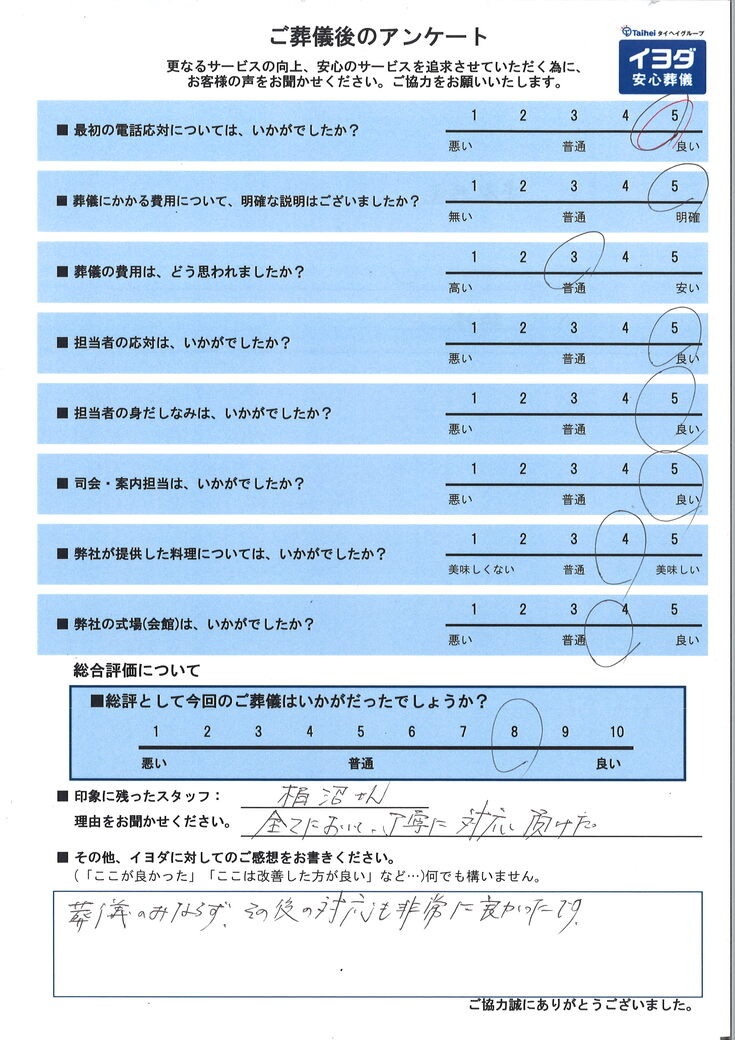 ご葬儀後のアンケート
Taihei タイヘイグループ
イヨダ
安心葬儀
更なるサービスの向上、安心のサービスを追求させていただく為に、
お客様の声をお聞かせください。ご協力をお願いいたします。
■ 最初の電話応対については、いかがでしたか？
1 2 3 4 5
悪い 普通 良い
■ 葬儀にかかる費用について、明確な説明はございましたか？
1 2 3 4 5
無い 普通 明確
■ 葬儀の費用は、どう思われましたか？
1 2 3 4 5
高い 普通 安い
■ 担当者の応対は、いかがでしたか？
1 2 3 4 5
悪い 普通 良い
■ 担当者の身だしなみは、いかがでしたか？
1 2 3 4 5
悪い 普通 良い
■ 司会・案内担当は、いかがでしたか？
1 2 3 4 5
悪い 普通 良い
■ 弊社が提供した料理については、いかがでしたか？
1 2 3 4 5
美味しくない 普通 美味しい
■ 弊社の式場(会館)は、いかがでしたか？
1 2 3 4 5
悪い 普通 良い
総合評価について
■総評として今回のご葬儀はいかがだったでしょうか？
1 2 3 4 5 6 7 8 9 10
悪い 普通 良い
■ 印象に残ったスタッフ： 沼さん
理由をお聞かせください。 全てにおいて、丁寧に対応し頂けた。
■ その他、イヨダに対してのご感想をお書きください。
(「ここが良かった」「ここは改善した方が良い」など…)何でも構いません。
葬儀のみならず、その後の対応も非常に良かったです。
ご協力誠にありがとうございました。